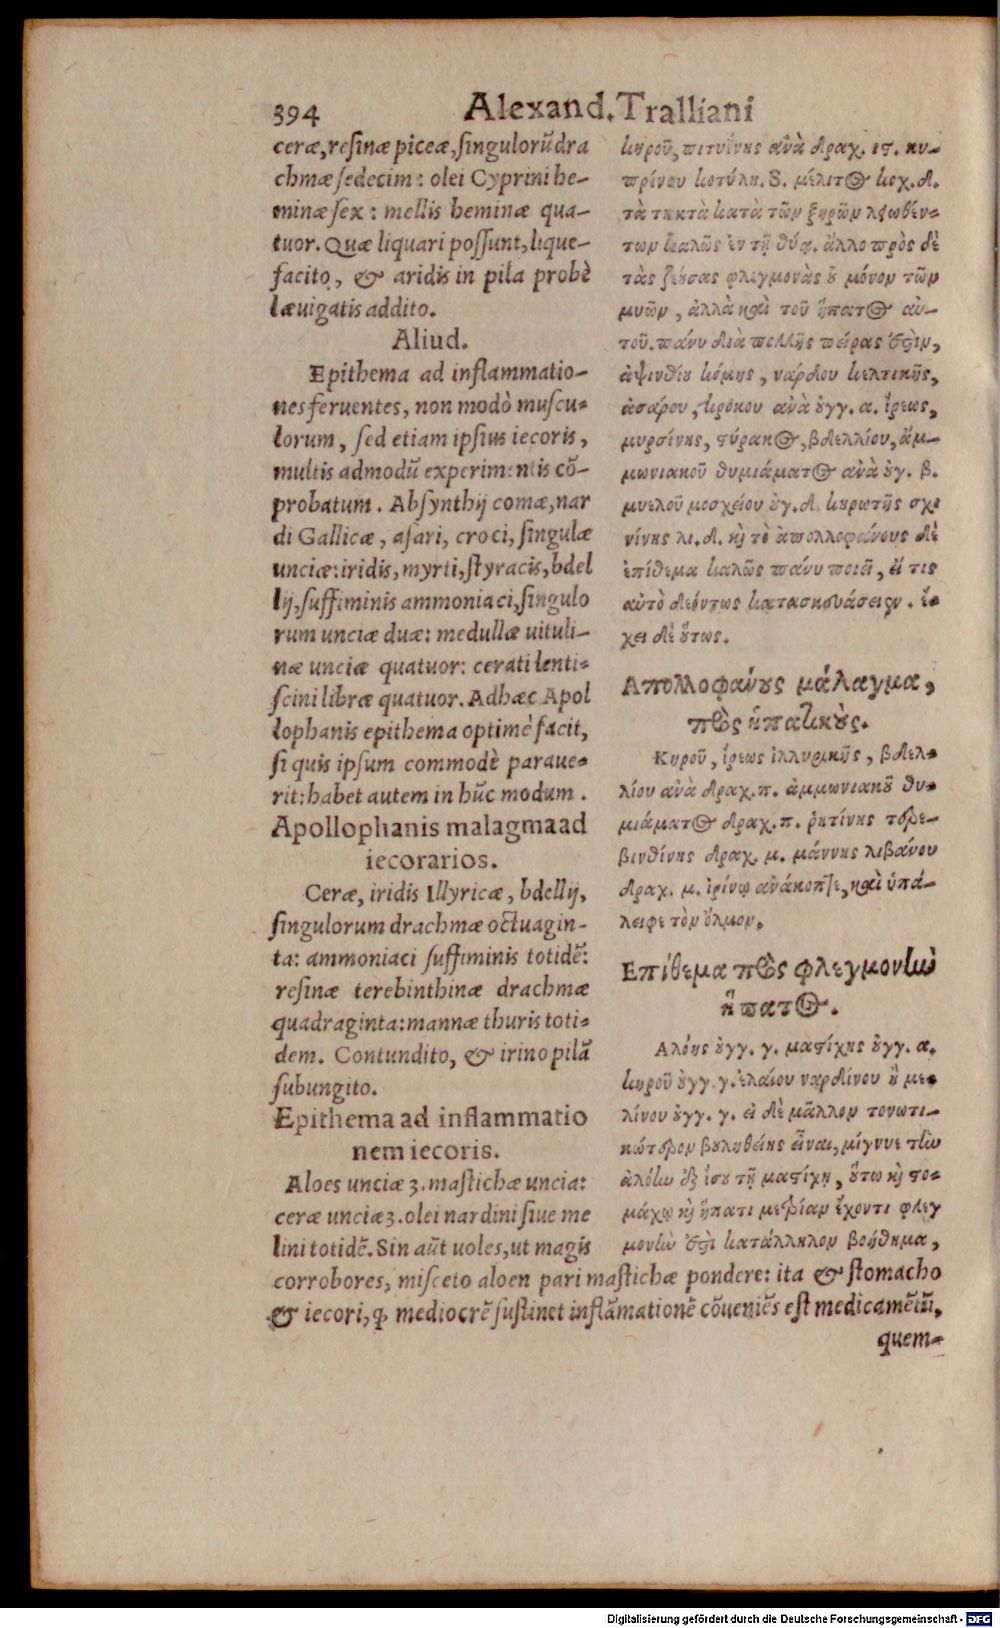 394 Alexand. Tralliani
ceræ, resinæ piceæ, singulorũ dra
chmæ sedecim: olei Cyprini he-
minæ sex: mellis heminæ qua-
tuor. Quæ liquari possunt, lique-
facito, & aridis in pila probè
lævigatis addito.
Aliud.
Epithema ad inflammatio-
nes feruentes, non modò muscu-
lorum, sed etiam ipsius iecoris,
multis admodũ experimentis cõ-
probatum. Absynthij comæ, nar
di Gallicæ, asari, croci, singulæ
unciæ: iridis, myrti, styracis, bdel
lij, suffiminis ammoniaci, singulo
rum unciæ duæ: medullæ uituli-
næ unciæ quatuor: cerati lenti-
scini libræ quatuor. Ad hæc Apol
lophanis epithema optimè facit,
si quis ipsum commodè paraue-
rit: habet autem in hũc modum.
Apollophanis malagma ad
iecorarios.
Ceræ, iridis Illyricæ, bdellij,
singulorum drachmæ octuagin-
ta: ammoniaci suffiminis totidẽ:
resinæ terebinthinæ drachmæ
quadraginta: mannæ thuris toti-
dem. Contundito, & irino pilã
subungito.
Epithema ad inflammatio
nem iecoris.
Aloes unciæ 3. mastichæ uncia:
ceræ unciæ 3. olei nardini siue me
lini totidẽ. Sin aũt uoles, ut magis
corrobores, misceto aloen pari mastichæ pondere: ita & stomacho
& iecori, q mediocrẽ sustinet inflãmationẽ cõueniẽs est medicamẽtũ,
quem-
κηροῦ, πιτυΐνης ἀνὰ δραχ. ις. κυ-
πρίνου κοτύλη. S. μέλιτος κοχ. δ.
τὰ τηκτὰ κατὰ τῶν ξηρῶν λειωθέν-
των καλῶς ἐν τῇ θύᾳ. ἄλλο πρὸς δὲ
τὰς ζεούσας φλεγμονὰς οὐ μόνον τῶν
μυῶν, ἀλλὰ καὶ τοῦ ἥπατος αὐ-
τοῦ. πάνυ διὰ πολλῆς πείρας ἐστὶν,
ἀψινθίου κόμης, νάρδου κελτικῆς,
ἀσάρου, κρόκου ἀνὰ οὐγγ. α. ἴρεως,
μυρσίνης, στύρακος, βδελλίου, ἀμ-
μωνιακοῦ θυμιάματος ἀνὰ οὐγ. β.
μυελοῦ μοσχείου οὐγ. δ. κηρωτῆς σχι
νίνης λι. δ. καὶ τὸ ἀπολλοφάνους δὲ
ἐπίθεμα καλῶς πάνυ ποιεῖ, εἴ τις
αὐτὸ δεόντως κατασκευάσειεν. ἔ-
χει δὲ οὕτως.
Ἀπολλοφάνους μάλαγμα,
πρὸς ἡπατικούς.
Κηροῦ, ἴρεως ἰλλυρικῆς, βδελ-
λίου ἀνὰ δραχ. π. ἀμμωνιακοῦ θυ-
μιάματος δραχ. π. ῥητίνης τερε-
βινθίνης δραχ. μ. μάννης λιβάνου
δραχ. μ. ἰρίνῳ ἀνάκοπτε, καὶ ὑπά-
λειφε τὸν ὅλμον.
Ἐπίθεμα πρὸς φλεγμονὴν
ἥπατος.
Ἀλόης οὐγγ. γ. μαστίχης οὐγγ. α.
κηροῦ οὐγγ. γ. ἐλαίου ναρδίνου ἢ μη-
λίνου οὐγγ. γ. εἰ δὲ μᾶλλον τονωτι-
κώτερον βουληθείης εἶναι, μίγνυε τὴν
ἀλόην ἐξ ἴσου τῇ μαστίχῃ, οὕτω καὶ στο-
μάχῳ καὶ ἥπατι μετρίαν ἔχοντι φλεγ
μονὴν ἐστὶ κατάλληλον βοήθημα,
Digitalisierung gefördert durch die Deutsche Forschungsgemeinschaft - DFG